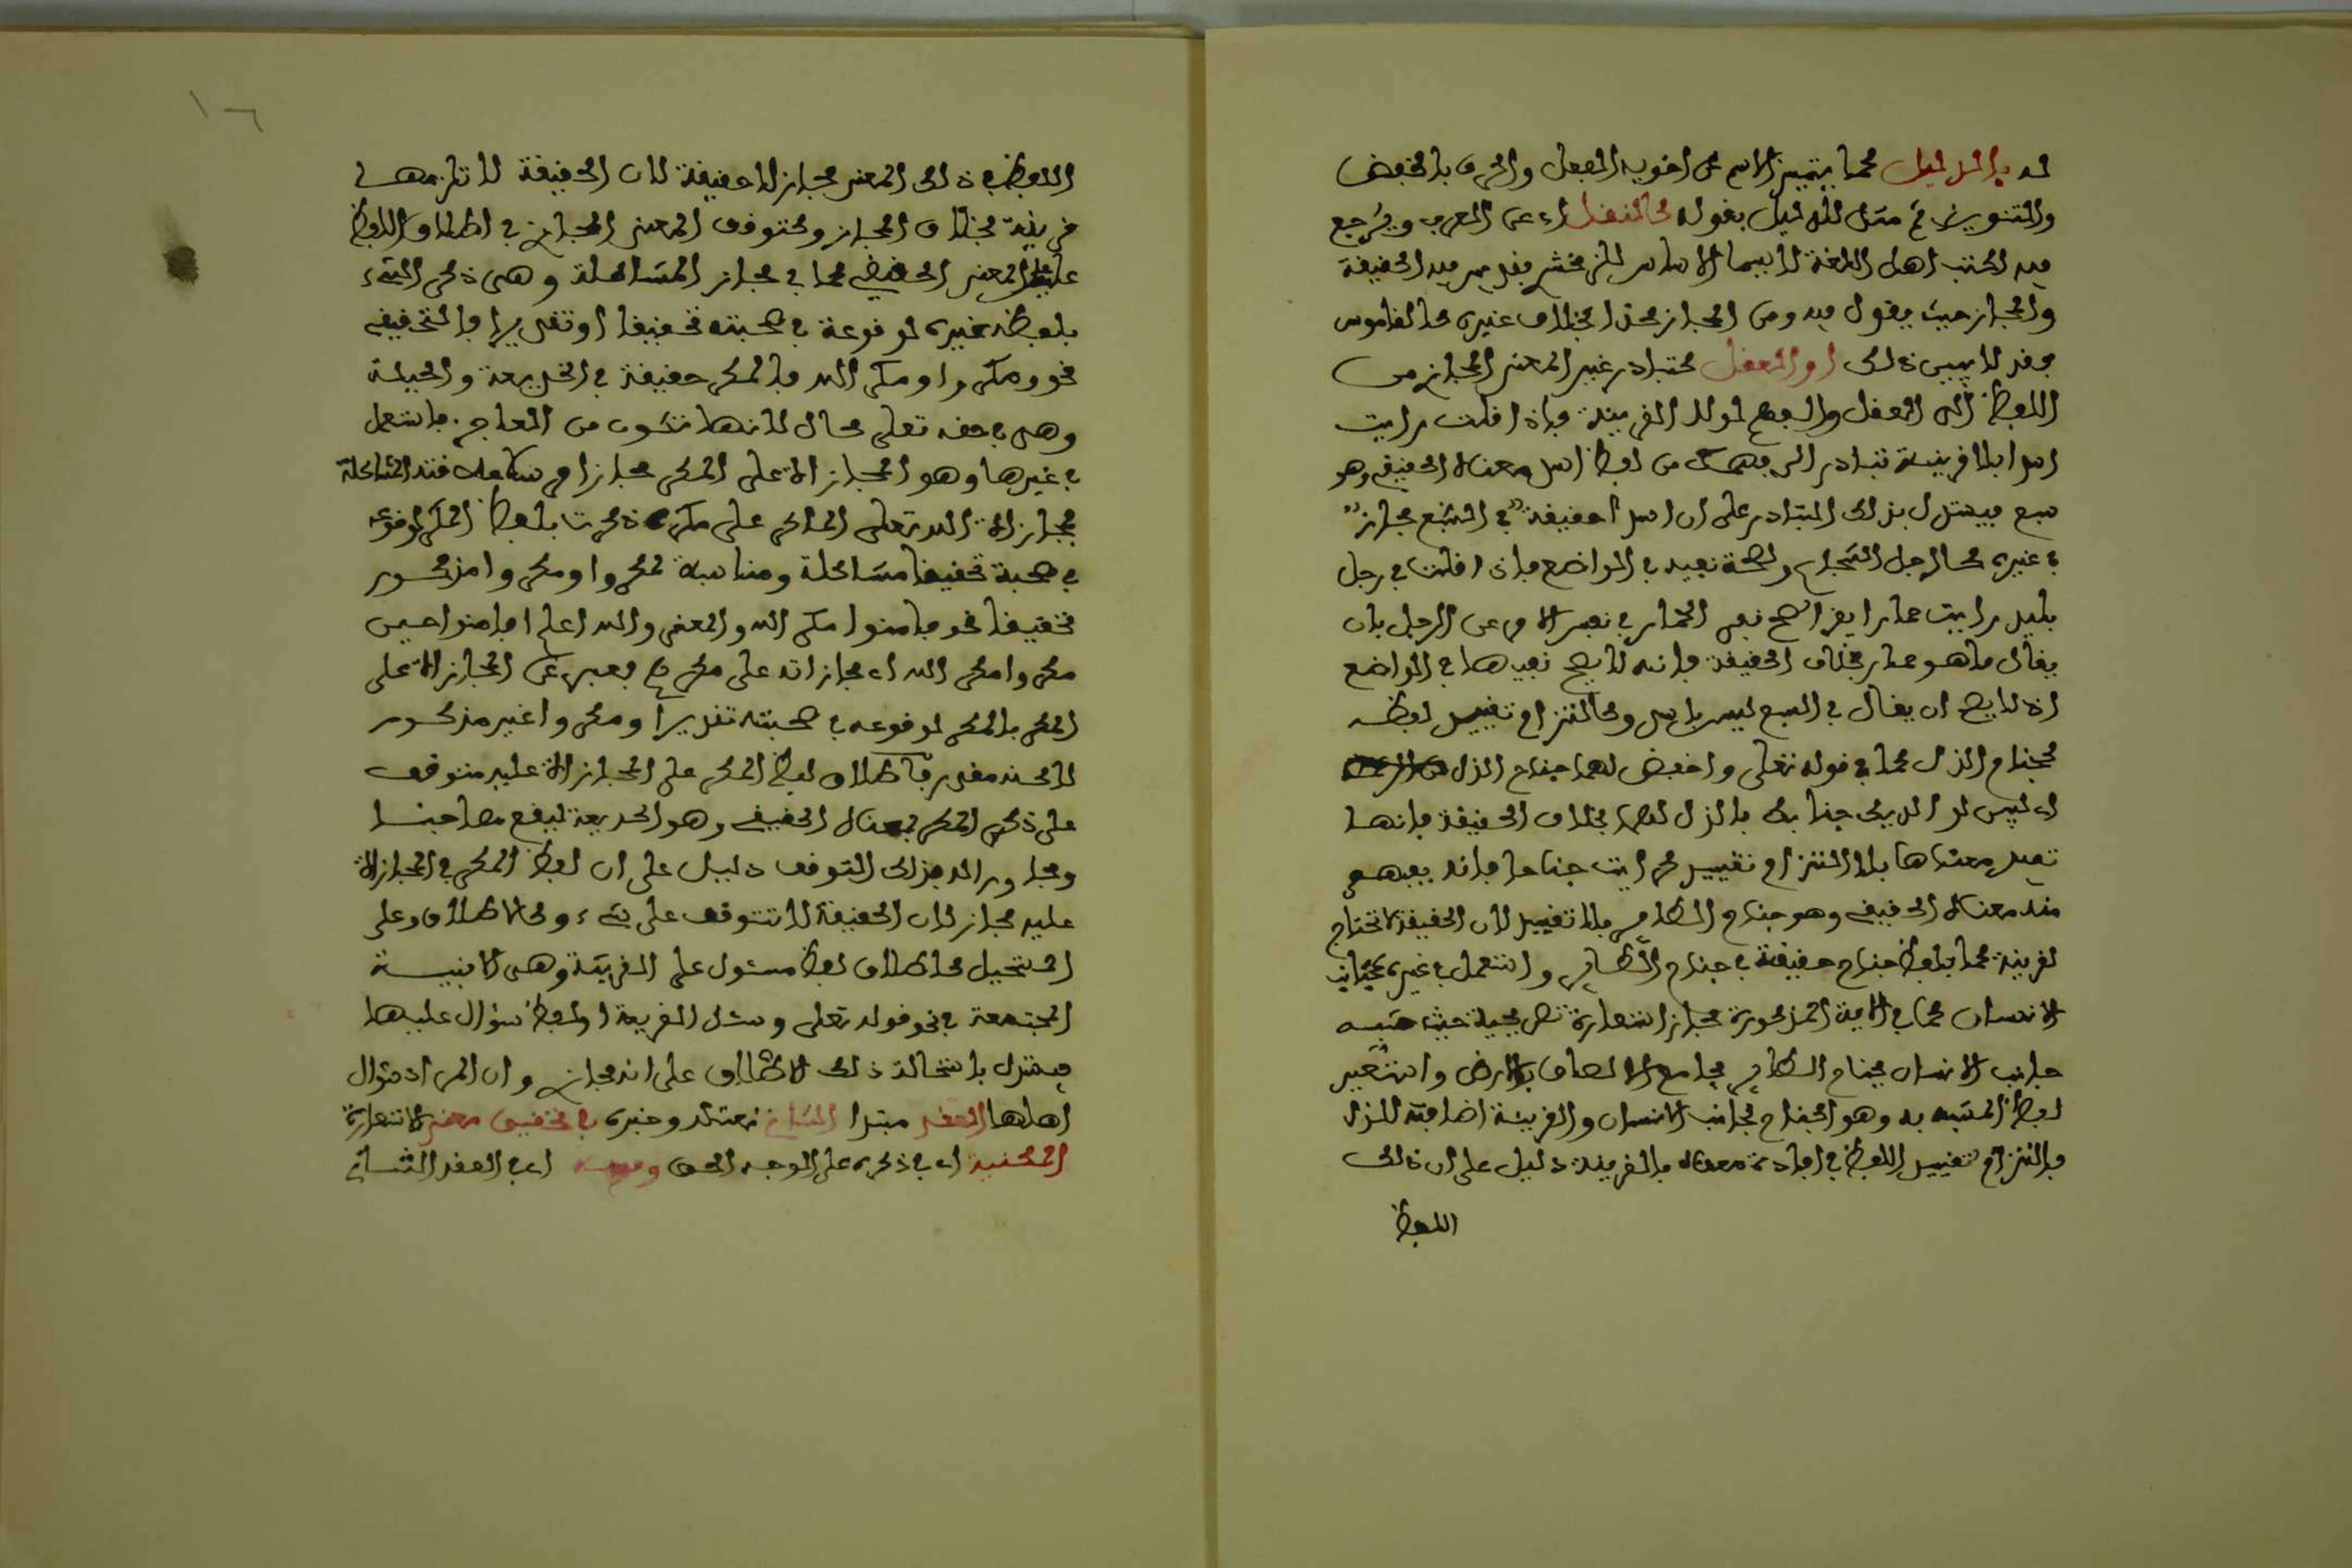 له بالدليل كما يتميز الاسم عن اخويه الفعل والحرف بالخفض
والتنوين ثم مثل للدليل بقوله كالنقل اى عن العرب ويرجع
فيه لكتب اهل اللغة لا سيما الاساس للزمخشرى فقد ميز فيه الحقيقة
والمجاز حيث يقول فيه ومن المجاز كذا بخلاف غيره كالقاموس
فقد لا يبين ذلك او العقل كتبادر غير المعنى المجازى من
اللفظ الى العقل والفهم لولا القرينة فاذا قلت رايت
اسدا بلا قرينة تبادر الى فهمك من لفظ اسد معناه الحقيقى وهو
سبع فيستدل بذلك المتبادر على ان اسدا حقيقة فى السبع مجاز
فى غيره كالرجل الشجاع وصحة نفيه فى الواضع فاذا قلت فى رجل
بليد رايت حمارا يقرا صح نفى الحمار فى نفس الامر عن الرجل بان
يقال ما هو حمار بخلاف الحقيقة فانه لا يصح نفيها فى الواضع
اذ لا يصح ان يقال فى السبع ليس باسد وكالتزام تقييد لفظه
كجناح الذل كما فى قوله تعلى واخفض لهما جناح الذل
اى ليس لوالديك جنابك بالذل لهما بخلاف الحقيقة فانها
تفيد معناها بلا التزام تقييد كرايت جناحا فانه يفهم
منه معناه الحقيقى وهو جناح الطاير بلا تقييد لان الحقيقة لا تحتاج
لقرينة كما بلفظ جناح حقيقة فى جناح الطاير واستعمل فى غيره كجانب
الانسان كما فى الاية المذكورة مجاز استعارة تصريحية حيث شبه
جانب الانسان بجناح الطاير بجامع الالصاق بالارض واستعير
لفظ المشبه به وهو الجناح لجانب الانسان والقرينة اضافته للذل
فالتزام تقييد اللفظ فى افادة معناه بالقرينة دليل على ان ذلك
اللفظ
١٦
اللفظ فى ذلك المعنى مجاز لا حقيقة لان الحقيقة لا تلزمها
قرينة بخلاف المجاز وكتوقف المعنى المجازى فى اطلاق اللفظ
عليه على المعنى الحقيقى كما فى مجاز المشاكلة وهى ذكر الشىء
بلفظ غيره لوقوعه فى صحبته تحقيقا او تقديرا فالتحقيقى
نحو ومكروا ومكر الله فالمكر حقيقة فى الخديعة والحيلة
وهى فى حقه تعلى محال لانها تكون من العاجز فاستعمل
فى غيرها وهو المجازاة على المكر مجازا مرسلا علاقته المشاكلة
فمجازاة الله تعلى الماكر على مكره ذكرت بلفظ المكر لوقوعه
فى صحبة تحقيقا مشاكلة ومناسبة لمكروا ومكروا مذكور
تحقيقا نحو فامنوا مكر الله والمعنى والله اعلم افامنوا حين
مكروا مكر الله اى مجازاته على مكرهم فعبر عن المجازاة على
المكر بالمكر لوقوعه فى صحبته تقديرا ومكروا غير مذكور
لاكنه مقدر فاطلاق لفظ المكر على المجازاة عليه متوقف
على ذكر المكر بمعناه الحقيقى وهو الخديعة ليقع مصاحبا
ومجاورا له فذلك التوقف دليل على ان لفظ المكر فى المجازاة
عليه مجاز لان الحقيقة لا تتوقف على شىء وكالاطلاق على
المستحيل كاطلاق لفظ مسئول على القرية وهى الابنية
المجتمعة فى نحو قوله تعلى وسئل القرية او لفظ سؤال عليها
فيستدل باستحالة ذلك الاطلاق على انه مجاز وان المراد سؤال
اهلها العقد مبتدا الثانى نعته وخبره فى تحقيق معنى الاستعارة
المكنية اى فى ذكره على الوجه الحق وفيه اى فى العقد الثانى